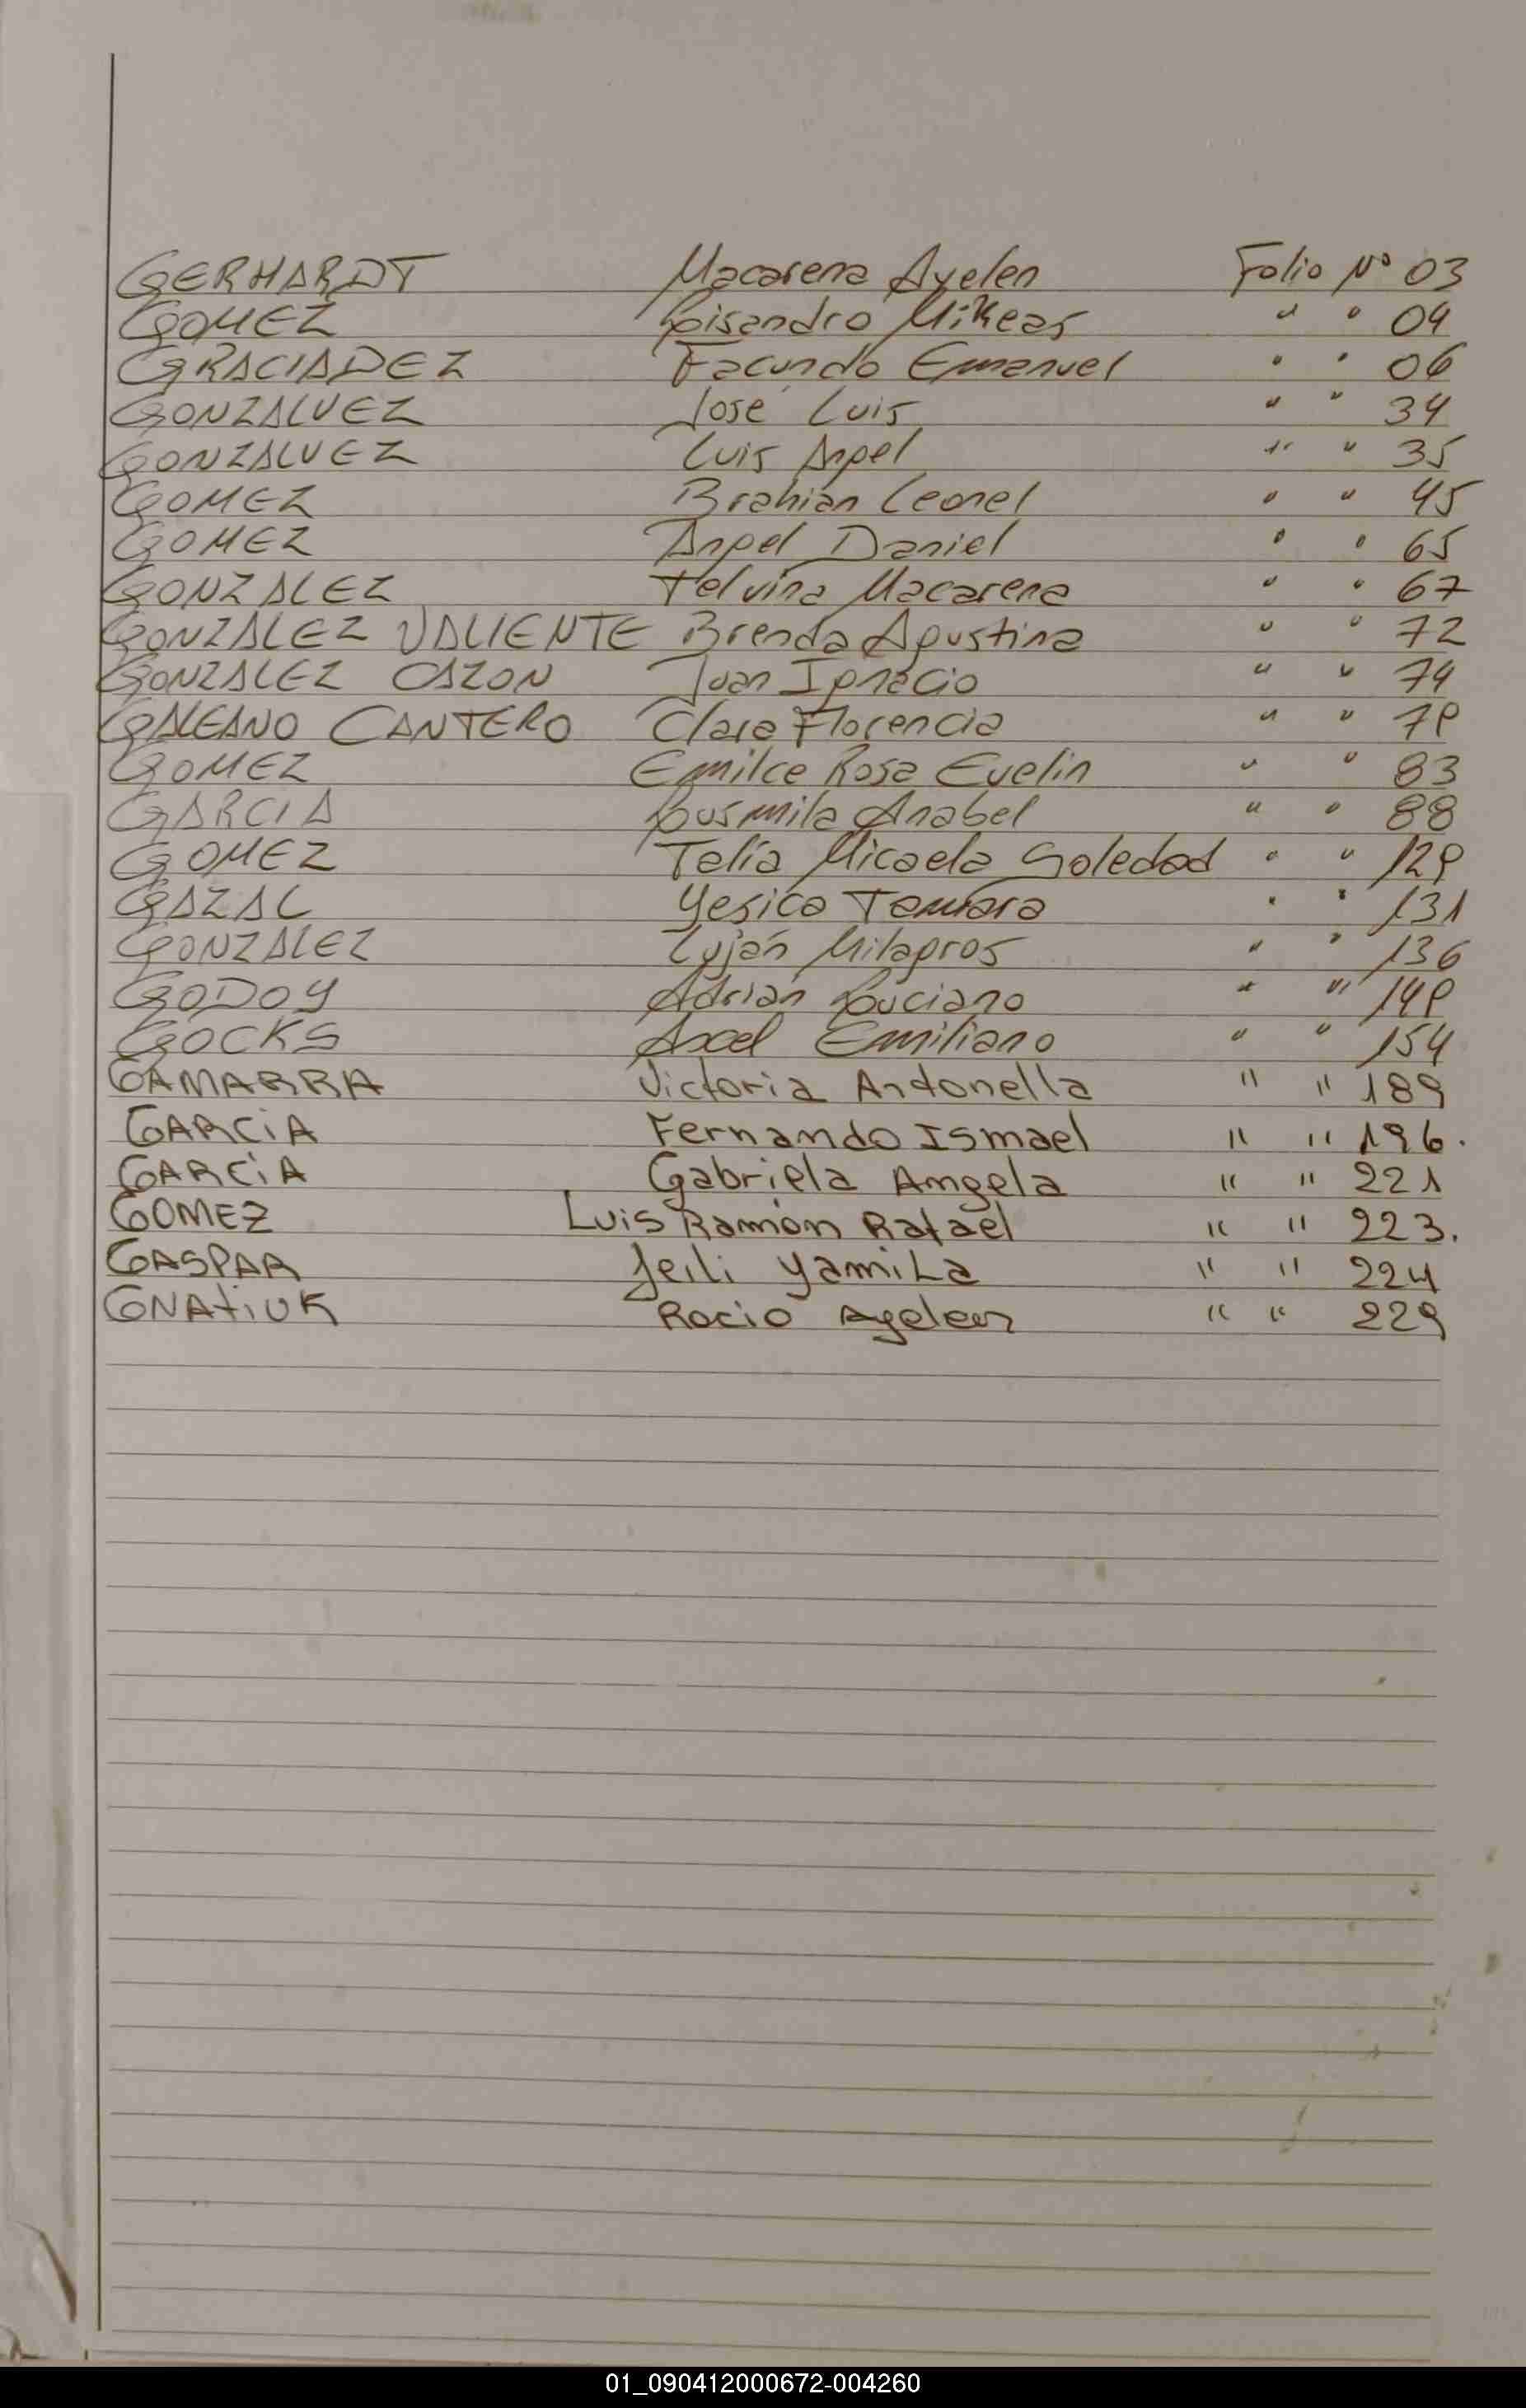 GERHARDT Macarena Ayelen Folio Nº 03
GOMEZ Lisandro Mikeas " " 04
GRACIADEZ Facundo Emanuel " " 06
GONZALVEZ José Luis " " 34
GONZALVEZ Luis Angel " " 35
GOMEZ Brahian Leonel " " 45
GOMEZ Angel Daniel " " 65
GONZALEZ Telvina Macarena " " 67
GONZALEZ VALIENTE Brenda Agustina " " 72
GONZALEZ CAZON Juan Ignacio " " 74
GALEANO CANTERO Clara Florencia " " 79
GOMEZ Emilce Rosa Evelin " " 83
GARCIA Lusmila Anabel " " 88
GOMEZ Telia Micaela Soledad " " 129
GAZAL Yesica Tamara " " 131
GONZALEZ Luján Milagros " " 136
GODOY Adrián Luciano " " 149
GOCKS Axel Emiliano " " 154
GAMARRA Victoria Antonella " " 189
GARCIA Fernando Ismael " " 196.
GARCIA Gabriela Angela " " 221
GOMEZ Luis Ramón Rafael " " 223.
GASPAR Jeili Yamila " " 224
GNATIUK Rocio Ayelen " " 229
01_090412000672-004260